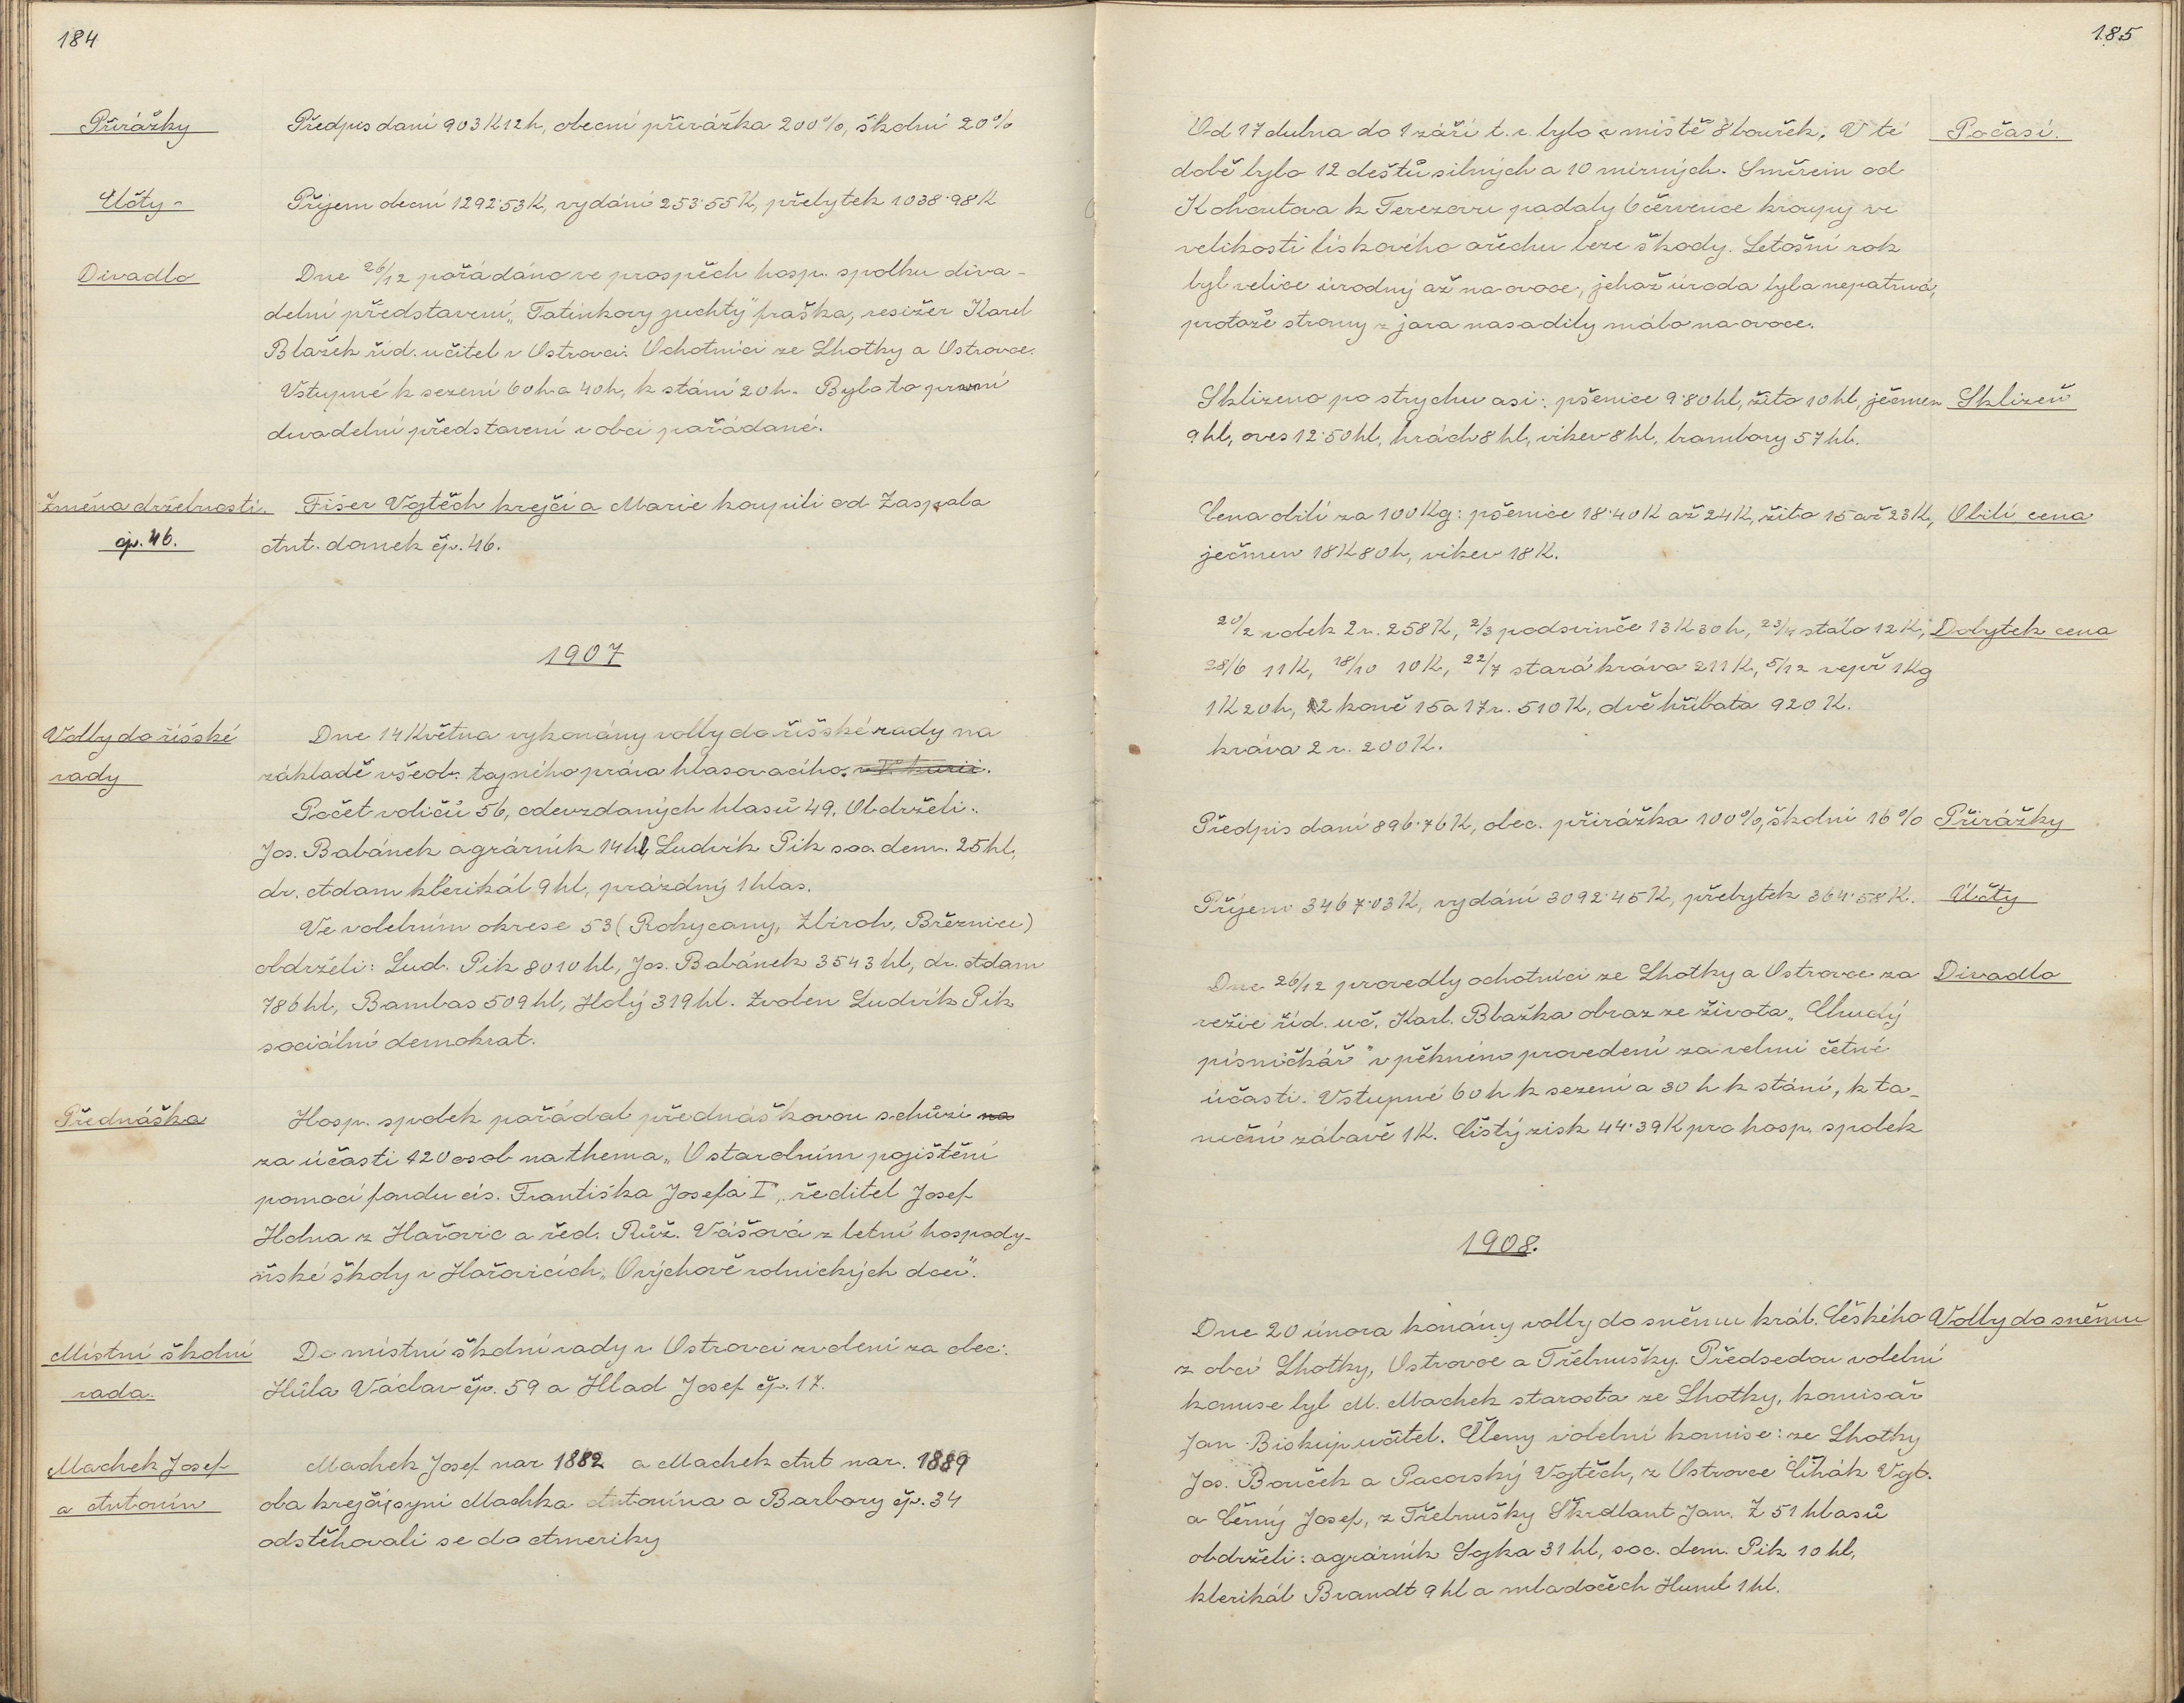 184
Přirážky
Předpis daní 903K12h, obecní přirážka 200%, školní 20%
Účty -
Příjem obecní 1292·53K, vydání 253·55K, přebytek 1038·98K
Divadlo
Dne 26/12 pořádáno ve prospěch hosp. spolku diva-
delní představení „Tatínkovy juchty" fraška, resižér Karel
Blažek říd. učitel v Ostrovci. Ochotníci ze Lhotky a Ostrovce.
Vstupné k sezení 60h a 40h, k stání 20h. Bylo to první
divadelní představení v obci pořádané.
Změna držebnosti.
čp. 46.
Fišer Vojtěch krejčí a Marie koupili od Zaspala
Ant. domek čp. 46.
1907
Volby do říšské
rady
Dne 14 Května vykonány volby do říšské rady na
základě všeob. tajného práva hlasovacího. v V. kurii.
Počet voličů 56, odevzdaných hlasů 49. Obdrželi:
Jos. Babánek agrárník 14 hl, Ludvík Pik soc. dem. 25 hl,
dr. Adam klerikál 9 hl, prázdný 1 hlas.
Ve volebním okrese 53 (Rokycany, Zbiroh, Březnice)
obdrželi: Lud. Pik 8010 hl, Jos. Babánek 3543 hl, dr. Adam
786 hl, Bambas 509 hl, Holý 319 hl. Zvolen Ludvík Pik
sociální demokrat.
Přednáška
Hosp. spolek pořádal přednáškovou schůzi na
za účasti 120 osob na thema „O starobním pojištění
pomocí fondu cís. Františka Josefa I", ředitel Josef
Holna z Hořovic a řed. Růž. Vášová z letní hospody-
ňské školy v Hořovicích „O výchově rolnických dcer".
Místní školní
rada.
Do místní školní rady v Ostrovci zvoleni za obec:
Hůla Václav čp. 59 a Hlad Josef čp. 17.
Machek Josef
a Antonín
Machek Josef nar 1882 a Machek Ant nar. 1889
oba krejčí, syni Machka Antonína a Barbory čp. 34
odstěhovali se do Ameriky
185
Od 17 dubna do 1 září t. r. bylo v místě 8 bouřek. V té
Počasí.
době bylo 12 deštů silných a 10 mírných. Směrem od
Kohoutova k Terezovu padaly 6 července kroupy ve
velikosti lískového ořechu beze škody. Letošní rok
byl velice úrodný až na ovoce, jehož úroda byla nepatrná,
protože stromy z jara nasadily málo na ovoce.
Sklizeno po strychu asi: pšenice 9·80 hl, žito 10 hl, ječmen
Sklizeň
9 hl, oves 12·50 hl, hrách 8 hl, vikev 8 hl, brambory 57 hl.
Cena obilí za 100 Kg: pšenice 18·40K až 24K, žito 15 až 23K,
Obilí cena
ječmen 18K80h, vikev 18K.
20/2 vobek 2 r. 258K, 2/3 podsvinče 13K30h, 23/4 stálo 12K,
Dobytek cena
28/6 11K, 18/10 10K, 22/7 stará kráva 211K, 5/12 vepř 1Kg
1K20h, 2 koně 15 a 17 r. 510K, dvě hříbata 920K.
kráva 2 r. 200K.
Předpis daní 896·76K, obec. přirážka 100%, školní 16%
Přirážky
Příjem 3467·03K, vydání 3092·45K, přebytek 364·58K.
Účty
Dne 26/12 provedly ochotníci ze Lhotky a Ostrovce za
Divadlo
režie říd. uč. Karl. Blažka obraz ze života „Chudý
písničkář" v pěkném provedení za velmi četné
účasti. Vstupné 60 h k sezení a 30 h k stání, k ta-
neční zábavě 1K. Čistý zisk 44·39K pro hosp. spolek
1908.
Dne 20 února konány volby do sněmu král. Českého
Volby do sněmu
z obcí Lhotky, Ostrovce a Třebnušky. Předsedou volební
komise byl M. Machek starosta ze Lhotky, komisař
Jan Biskup učitel. Členy volební komise: ze Lhotky
Jos. Bouček a Pacovský Vojtěch, z Ostrovce Čihák Vojt.
a Černý Josef, z Třebnušky Škrdlant Jan. Z 51 hlasů
obdrželi: agrárník Sojka 31 hl, soc. dem. Pik 10 hl,
klerikál Brandt 9 hl a mladočech Huml 1 hl.